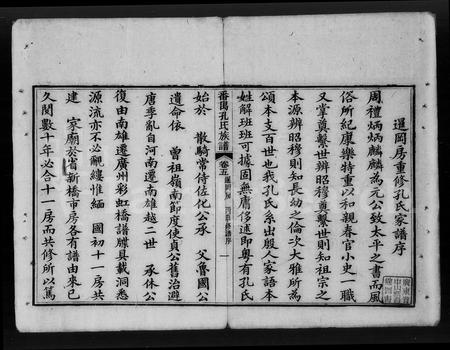 暹岡房重修孔氏家譜序
周禮炳炳麟麟為元公致太平之書而風
俗所紀康樂特重以和親春官小史一職
又掌奠繫世辨昭穆奠繫世則知祖宗之
本源辨昭穆則知長幼之倫次大雅所為
頌本支百世也我孔氏系出殷人家語本
姓解班班可據固無庸侈述即粵有孔氏
番禺孔氏族譜
卷五
始於 散騎常侍佐化公承 父魯國公
遺命依 曾祖嶺南節度使貞公舊治避
唐季亂自河南遷南雄越二世 承休公
復由南雄遷廣州彩虹橋譜牒具載洞悉
源流亦不必覼縷惟緬 國初十一房共
建 家廟於省新橋市房各有譜由來已
久閱數十年必合十一房而共修所以篤